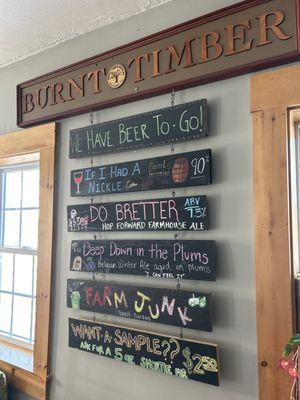 BURNT TIMBER
WE HAVE BEER TO-GO!
IF I HAD A
NICKLE
90
DO BRETTER
HOP FORWARD FARMHOUSE ALE
ABV
7.5%
DEEP DOWN IN THE PLUMS
Belgian Winter Ale aged on plums
I CAN FEEL IT
FARM JUNK
Spelt Saison
WANT A SAMPLE???
ASK FOR A 5OZ. SHORTIE POUR
$2.50